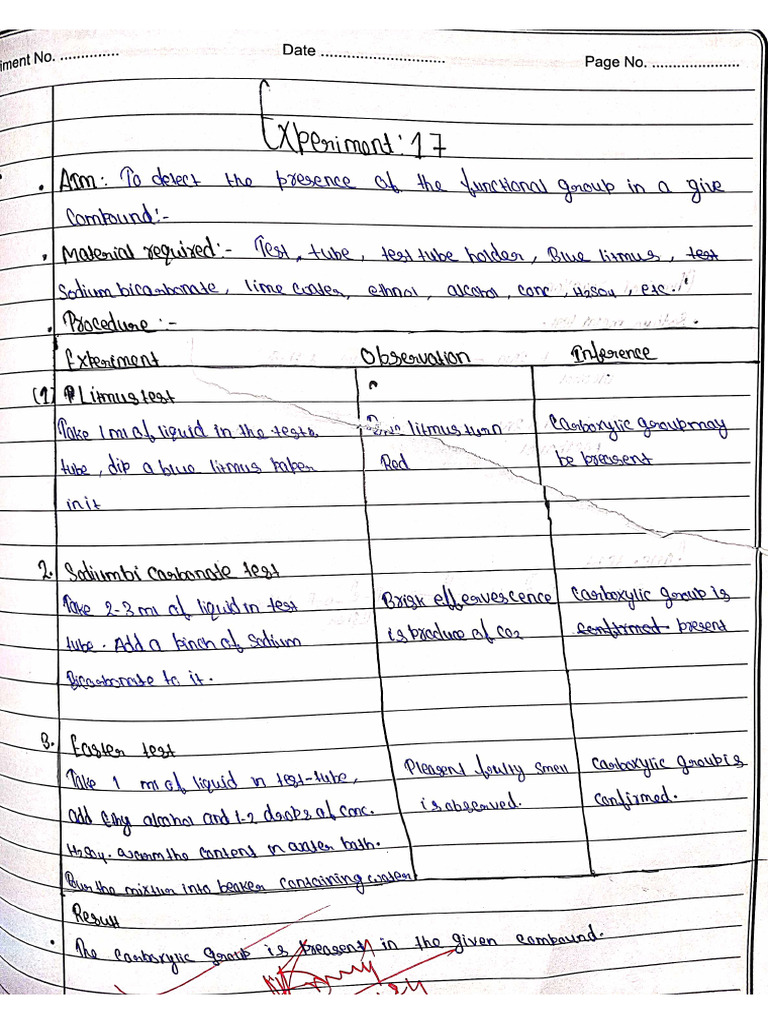 iment No. ..............
Date ............................
Page No. .....................
Experiment: 17
Aim: To detect the presence of the functional group in a give
Compound:-
Material required:- Test, tube, test tube holder, Blue litmus, test
Sodium bicarbonate, lime water, ethnol, alcohol, conc, H2SO4, etc.
Procedure:-
Experiment Observation Inference
(1) Litmus test
Take 1 ml of liquid in the test
tube, dip a blue litmus paper
in it
litmus turn
Red
Carboxylic group may
be preasent
2. Sodiumbi carbonate test
Take 2-3 ml of liquid in test
tube. Add a pinch of Sodium
Bicarbonate to it.
Brisk effervescence
is produce of CO2
Carboxylic group is
confirmed present
3. Easter test
Take 1 ml of liquid in test-tube,
add Ethy alcohol and 1-2 drops of conc.
H2SO4. warm the content in water bath.
Pur the mixtur into beaker containing water
Pleasent fruity smell
is observed.
Carboxylic group is
confirmed.
Result
The carboxylic group is preasent in the given compound.